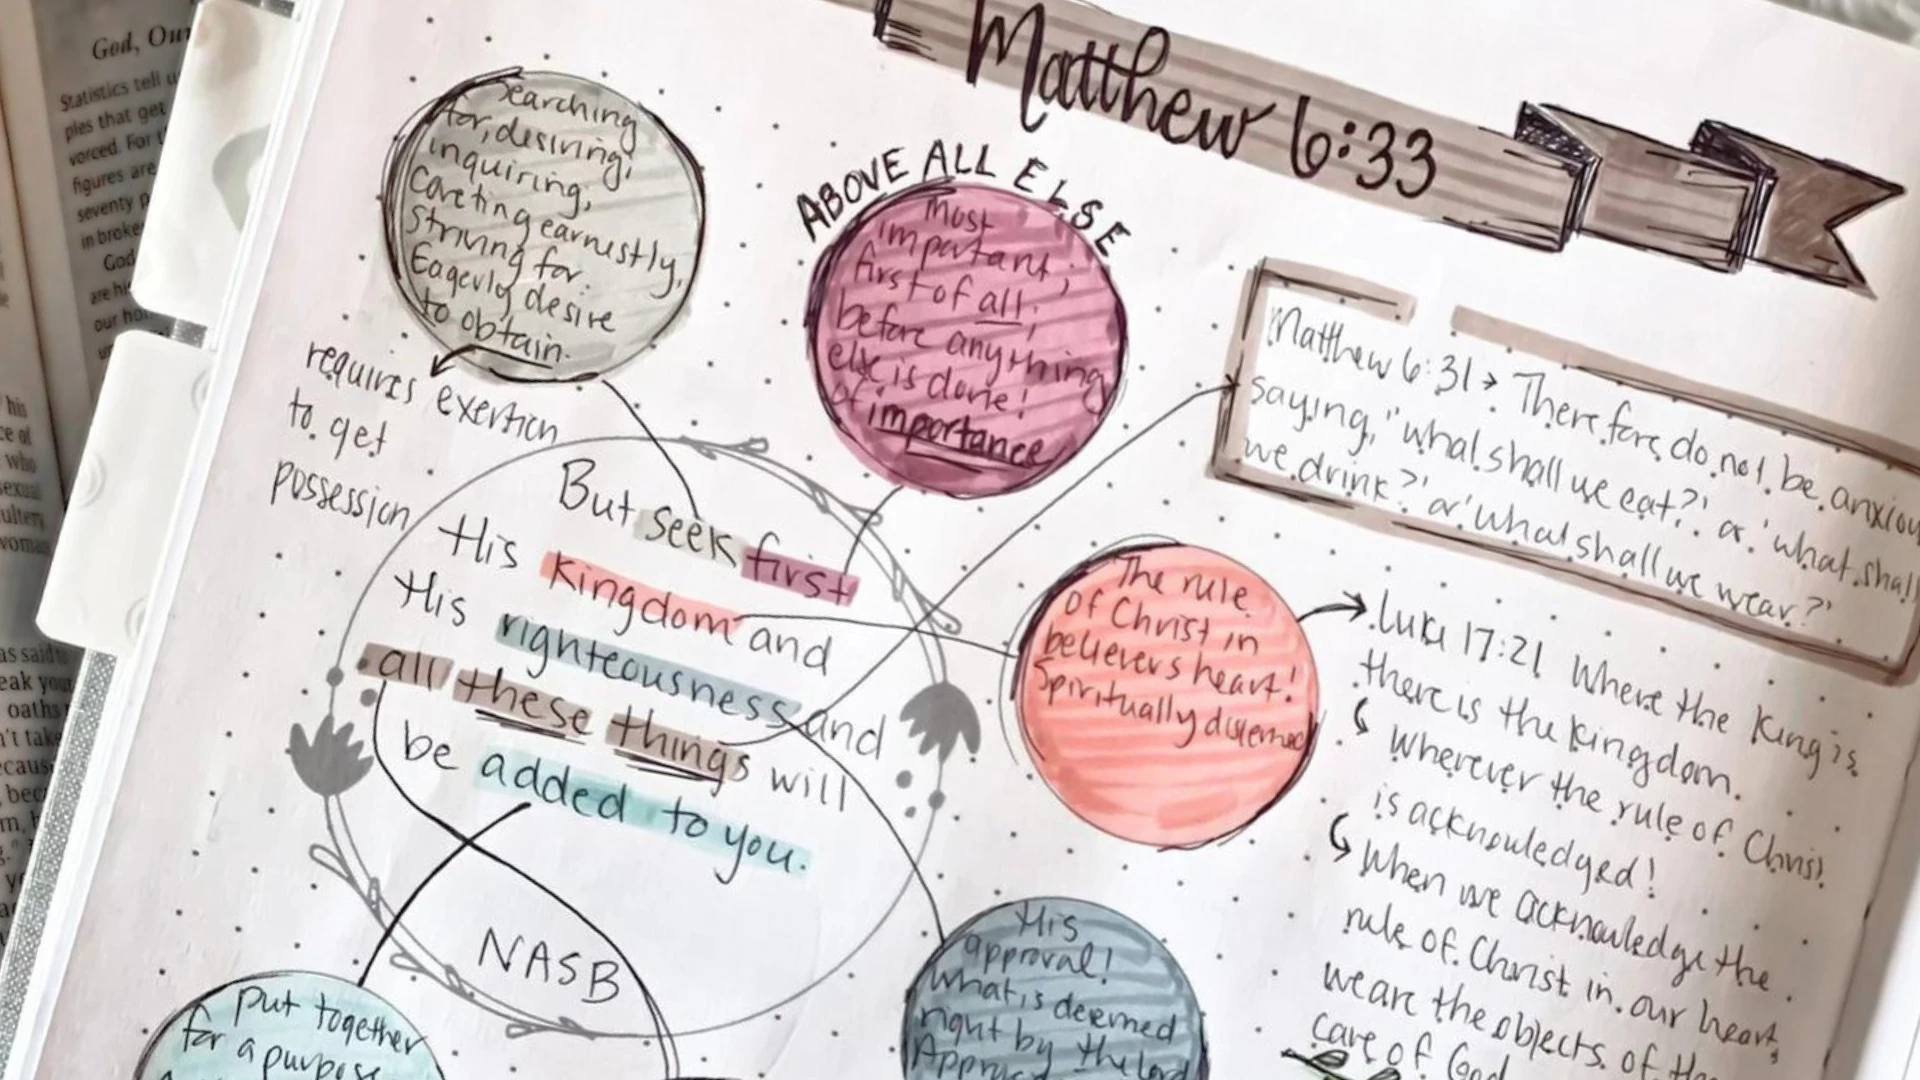 God, Our
Statistics tell u
ples that get
vorced. For
figures are
seventy p
in broke
God
are hi
our ho
his
ce of
who
sexual
woman
as said
eak you
oaths
n't take
ecause
Matthew 6:33
Searching
for, desiring,
inquiring,
Coveting earnestly,
Striving for.
Eagerly desire
to obtain.
requires exertion
to get
possession
ABOVE ALL ELSE
most
important,
first of all,
before anything
else is done!
of importance
Matthew 6:31 → Therefore, do not be anxiou
saying, "what shall we eat?' or 'what shall
we drink?' or 'what shall we wear?'
But seek first
His kingdom and
His righteousness and
all these things will
be added to you.
NASB
The rule
of Christ in
believers heart!
Spiritually
Luke 17:21 Where the King is
there is the kingdom.
Wherever the rule of Christ
is acknowledged!
When we acknowledge the
rule of Christ in our heart,
we are the objects of the
care of God
His
approval!
what is deemed
right by the Lord
put together
for a purpose